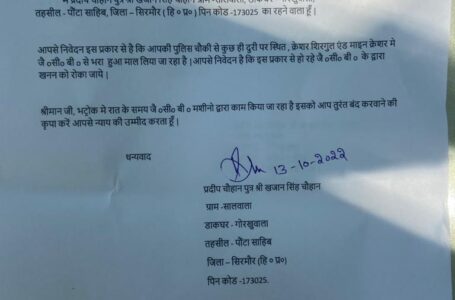 मै प्रदीप चौहान पुत्र श्री खजान सिंह चौहान ग्राम -सालवाला, डाकघर - गोरखुवाला,
तहसील - पौंटा साहिब, जिला – सिरमौर ( हि ० प्र०) पिन कोड -173025 का रहने वाला हूँ |
आपसे निवेदन इस प्रकार से है कि आपकी पुलिस चौकी से कुछ ही दुरी पर स्थित , क्रेशर शिरगुल एंड माइन क्रेशर मे
जे ०सी० बी ० से भरा हुआ माल लिया जा रहा है | आपसे निवेदन है कि इस प्रकार से हो रहे जे ०सी० बी ० के द्वारा
खनन को रोका जाये |
श्रीमान जी, भट्रोक मे रात के समय जे ०सी० बी ० मशीनो द्वारा काम किया जा रहा है इसको आप तुरंत बंद करवाने की
कृपा करें आपसे न्याय की उम्मीद करता हूँ |
धन्यवाद
13-10-2022
प्रदीप चौहान पुत्र श्री खजान सिंह चौहान
ग्राम -सालवाला
डाकघर - गोरखुवाला
तहसील – पौंटा साहिब
जिला – सिरमौर (हि ० प्र०)
पिन कोड -173025.